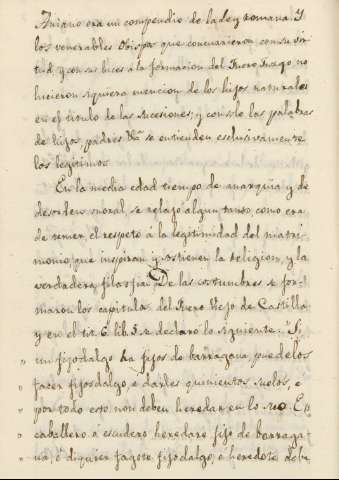 Aniano era un compendio de la ley romana. Y
los venerables Obispos que concurrieron con su vir-
tud y con sus luces á la formacion del Fuero Juzgo no
hicieron siquiera mencion de los hijos naturales
en el título de las sucesiones; y con solo las palabras
de hijos, padres &a se entienden esclusivamente
los legítimos.
En la media edad tiempo de anarquía y de
desorden moral, se relajó algun tanto, como era
de temer, el respeto á la legitimidad del matri-
monio, que inspiran y sostienen la religion, y la
verdadera filosofía. De las costumbres se for-
maron los capítulos del Fuero Viejo de Castilla
y en el tit. 6. lib. 5. se declaró lo siguiente. "Si
" un fijodalgo ha fijos de barragana, puedelos
" facer fijosdalgo, é darles quinientos sueldos, é
" por todo esto non deben heredar en lo suo. E si
" caballero ó escudero heredare fijo de barraga-
" na, é diquier fagote fijodalgo, é heredote debe